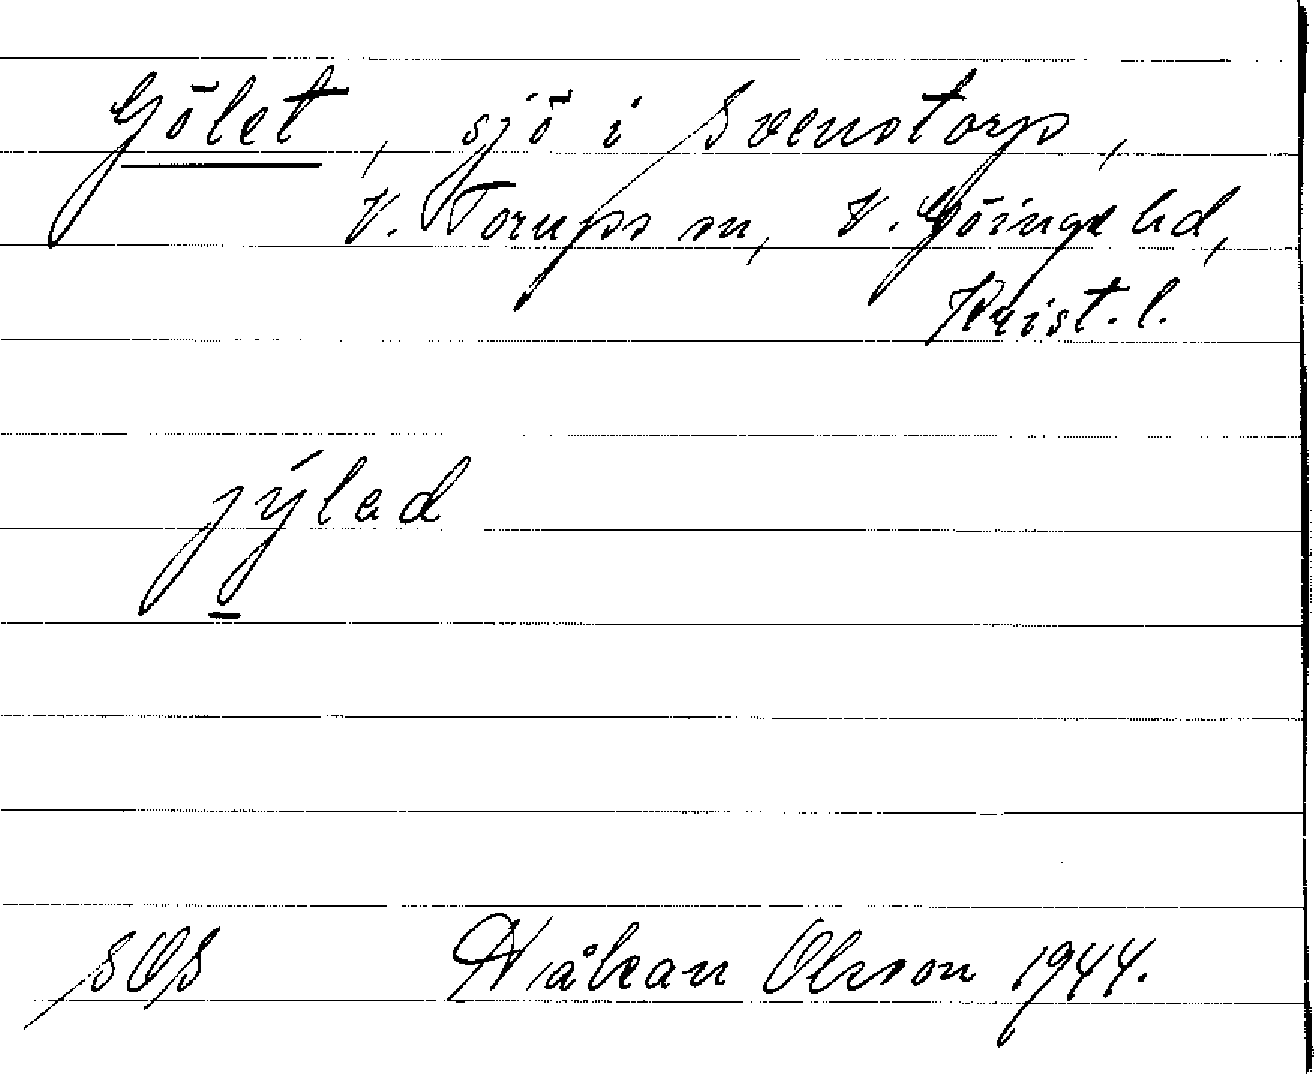 Gölet, sjö i Svenstorp,
V. Torups sn, V. Göinge hd,
Krist. l.
jýlad
SOS Håkan Olsson 1944.